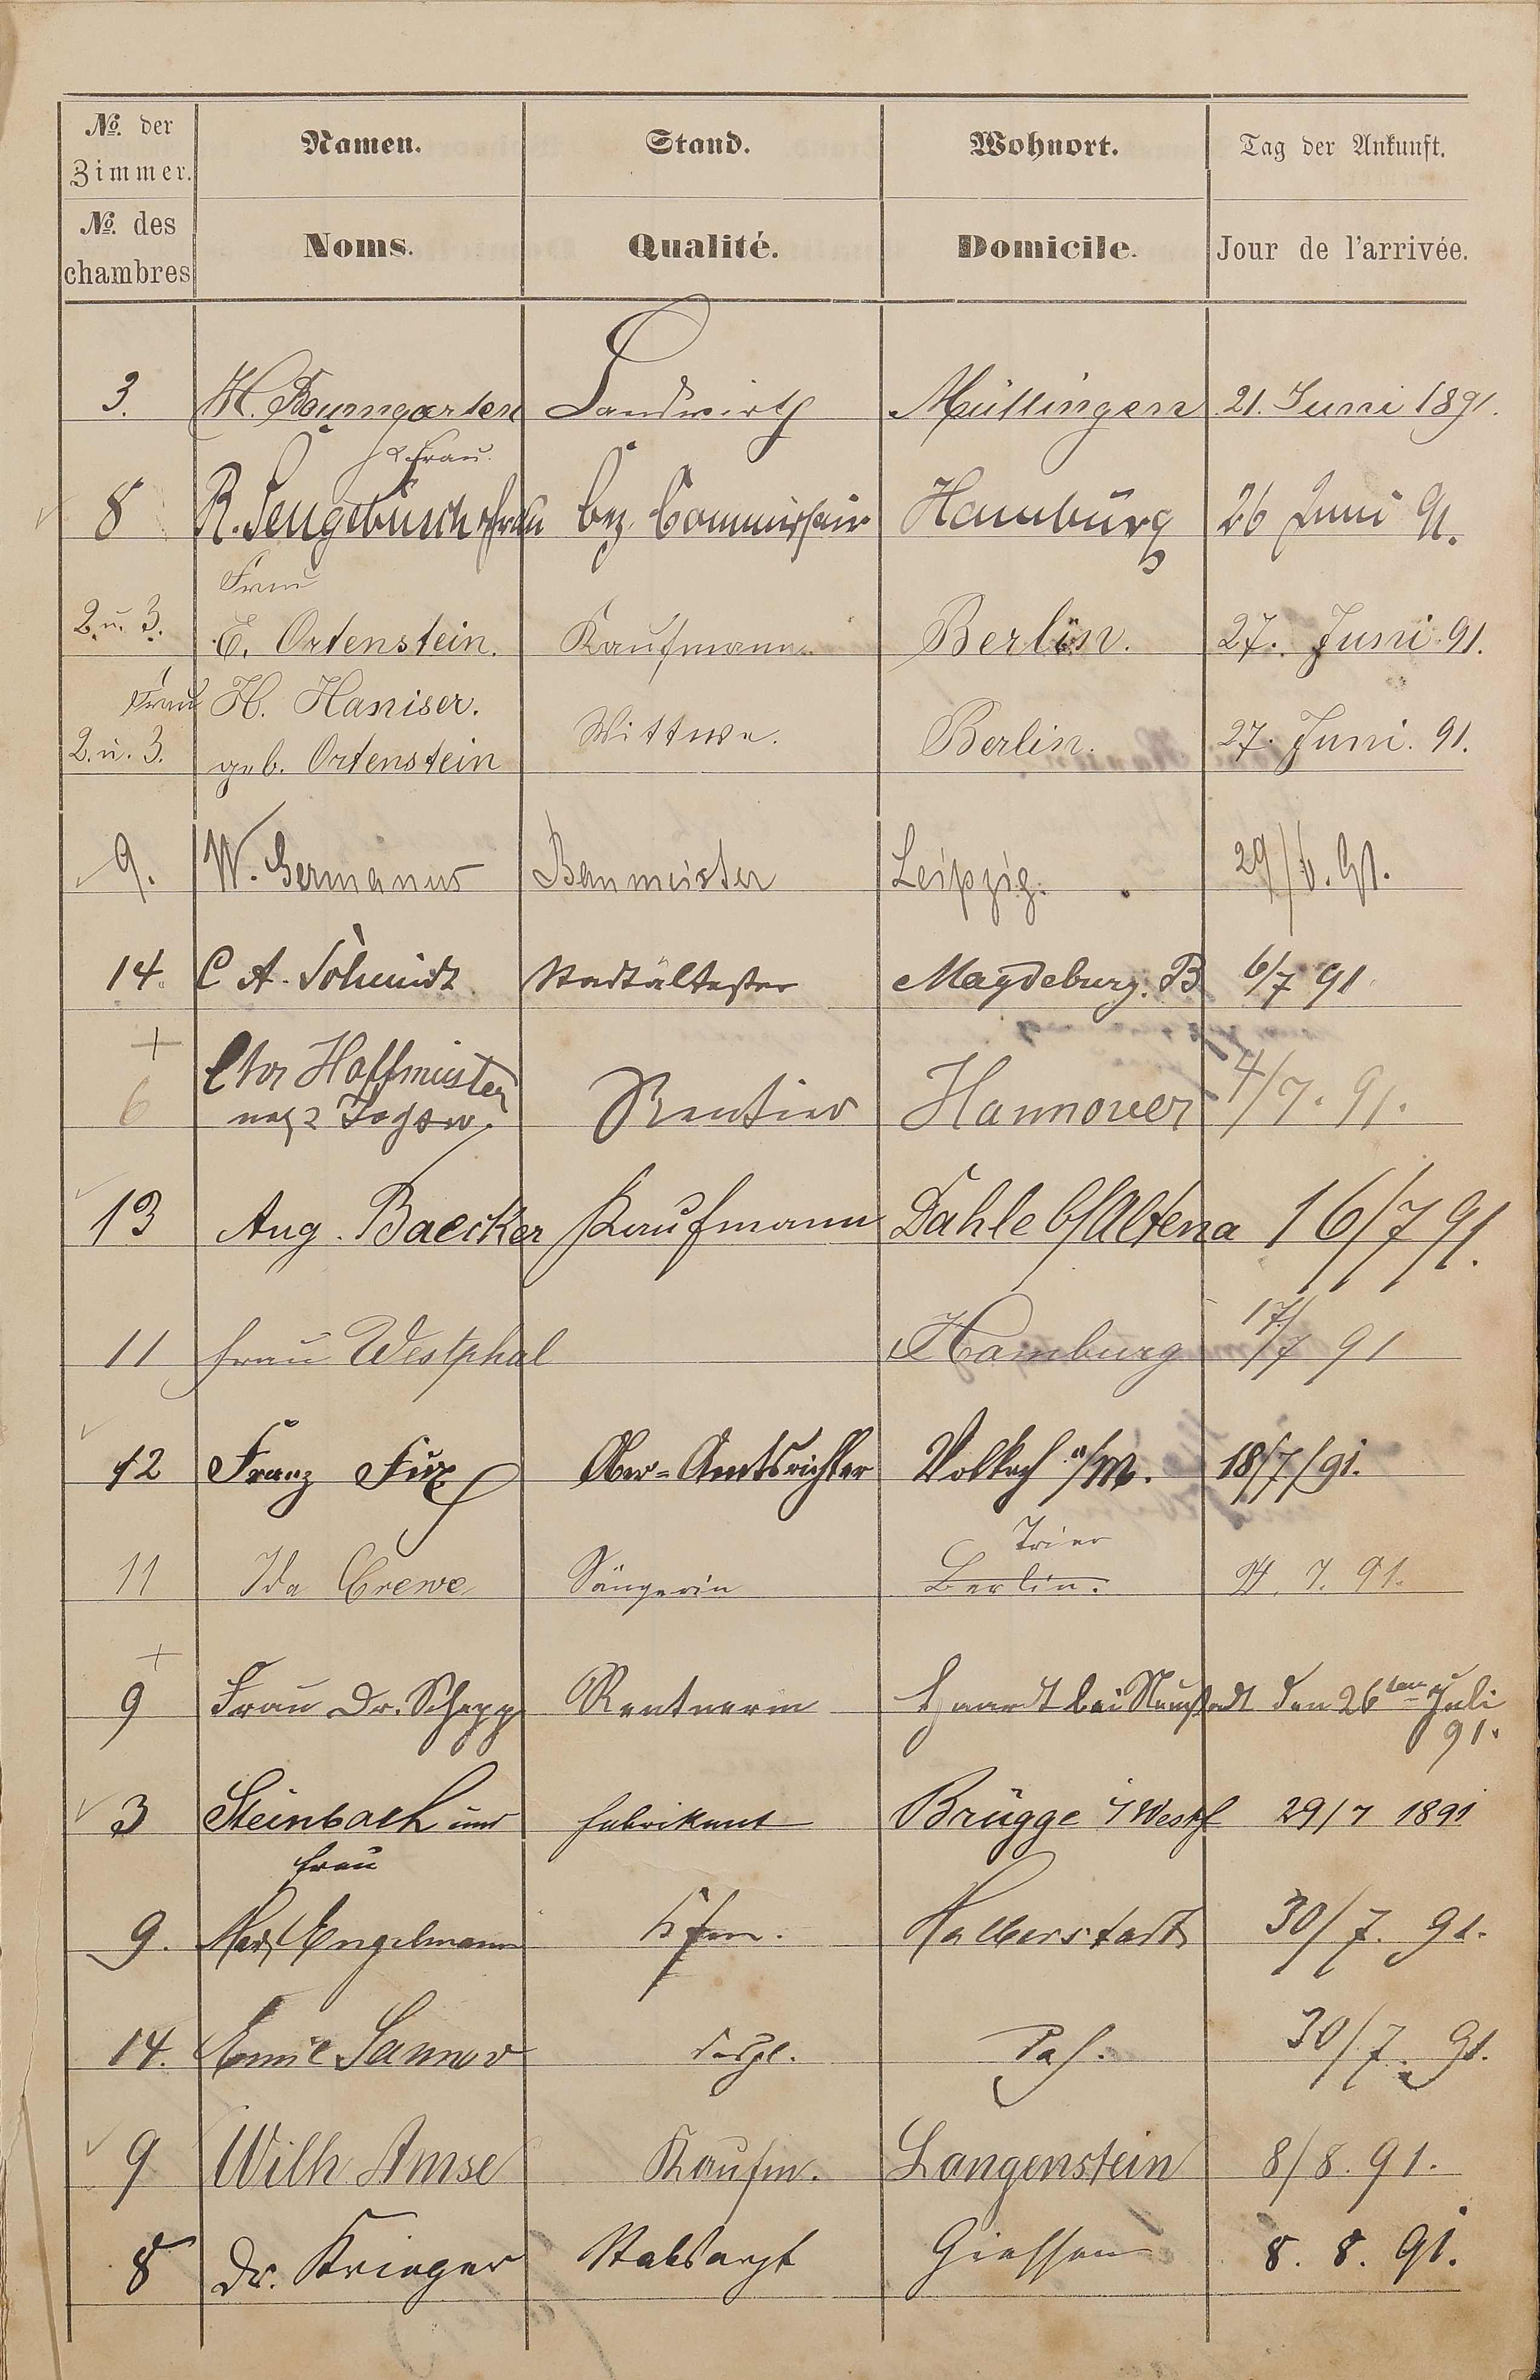 № der Zimmer. Namen. Stand. Wohnort. Tag der Ankunft.
№ des chambres Noms. Qualité. Domicile. Jour de l'arrivée.
3. H. Baumgarten Landwirth Müllingen 21. Juni 1891.
& Frau.
8 R. Sengebusch & Frau Bez. Commissair Hamburg 26 Juni 91.
Frau
2 u. 3. E. Ortenstein. Kaufmann. Berlin. 27. Juni 91.
Frau H. Haniser.
2. u. 3. geb. Ortenstein Wittwe. Berlin. 27. Juni. 91.
9. W. Germanus Baumeister Leipzig. 29/6. 91.
14. C A. Schmidt Stadtältester Magdeburg. B 6/7 91
+
6 Chr Hoffmeister Rentier Hannover 4/7. 91.
13 Aug. Baecker Kaufmann Dahle b/Altena 16/7 91.
11 Frau Westphal Hamburg 17/7 91
12 Franz Fux Ober-Amtsrichter Volkach a/M. 18/7/91.
Trier
11 Ida Crewe Sängerin Berlin. 7. 91.
+
9 Frau Dr. Schepp Rentnerin Haardt bei Neustadt den 26ten Juli
91.
3 Steinbach und Fabrikant Brügge i/Westf 29/7 1891
Frau
9. Max Engelmann Kfm. Halberstadt 30/7. 91.
14. Emil Sannow desgl. 30/7. 91.
9 Wilh Amse Kaufm. Langenstein 8/8. 91.
8 Dr. Krieger Stabsarzt Giessen 8. 8. 91.